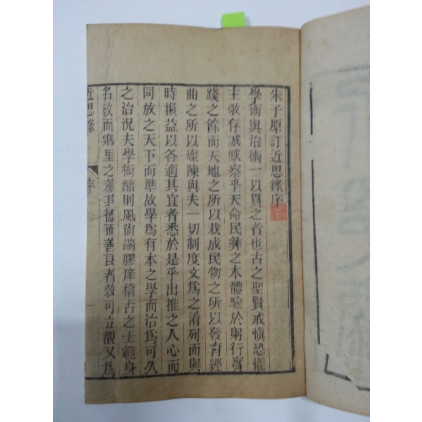 朱子原訂近思錄序
學術與治術一以貫之者也古之聖賢戒慎恐懼
主敬存誠默察乎天命民彝之本體驗於躬行實
踐之餘而天地之所以栽成民物之所以發育經
曲之所以燦陳與夫一切制度文為之淆列而與
時損益以各適其宜者悉於是乎出推之人心而
同放之天下而準故學為有本之學而治為可久
之治況夫學術醇則風俗端膠庠稽古之士範身
名教而鄉里之薰其德而善良者蓋可立觀又為
近思錄
序